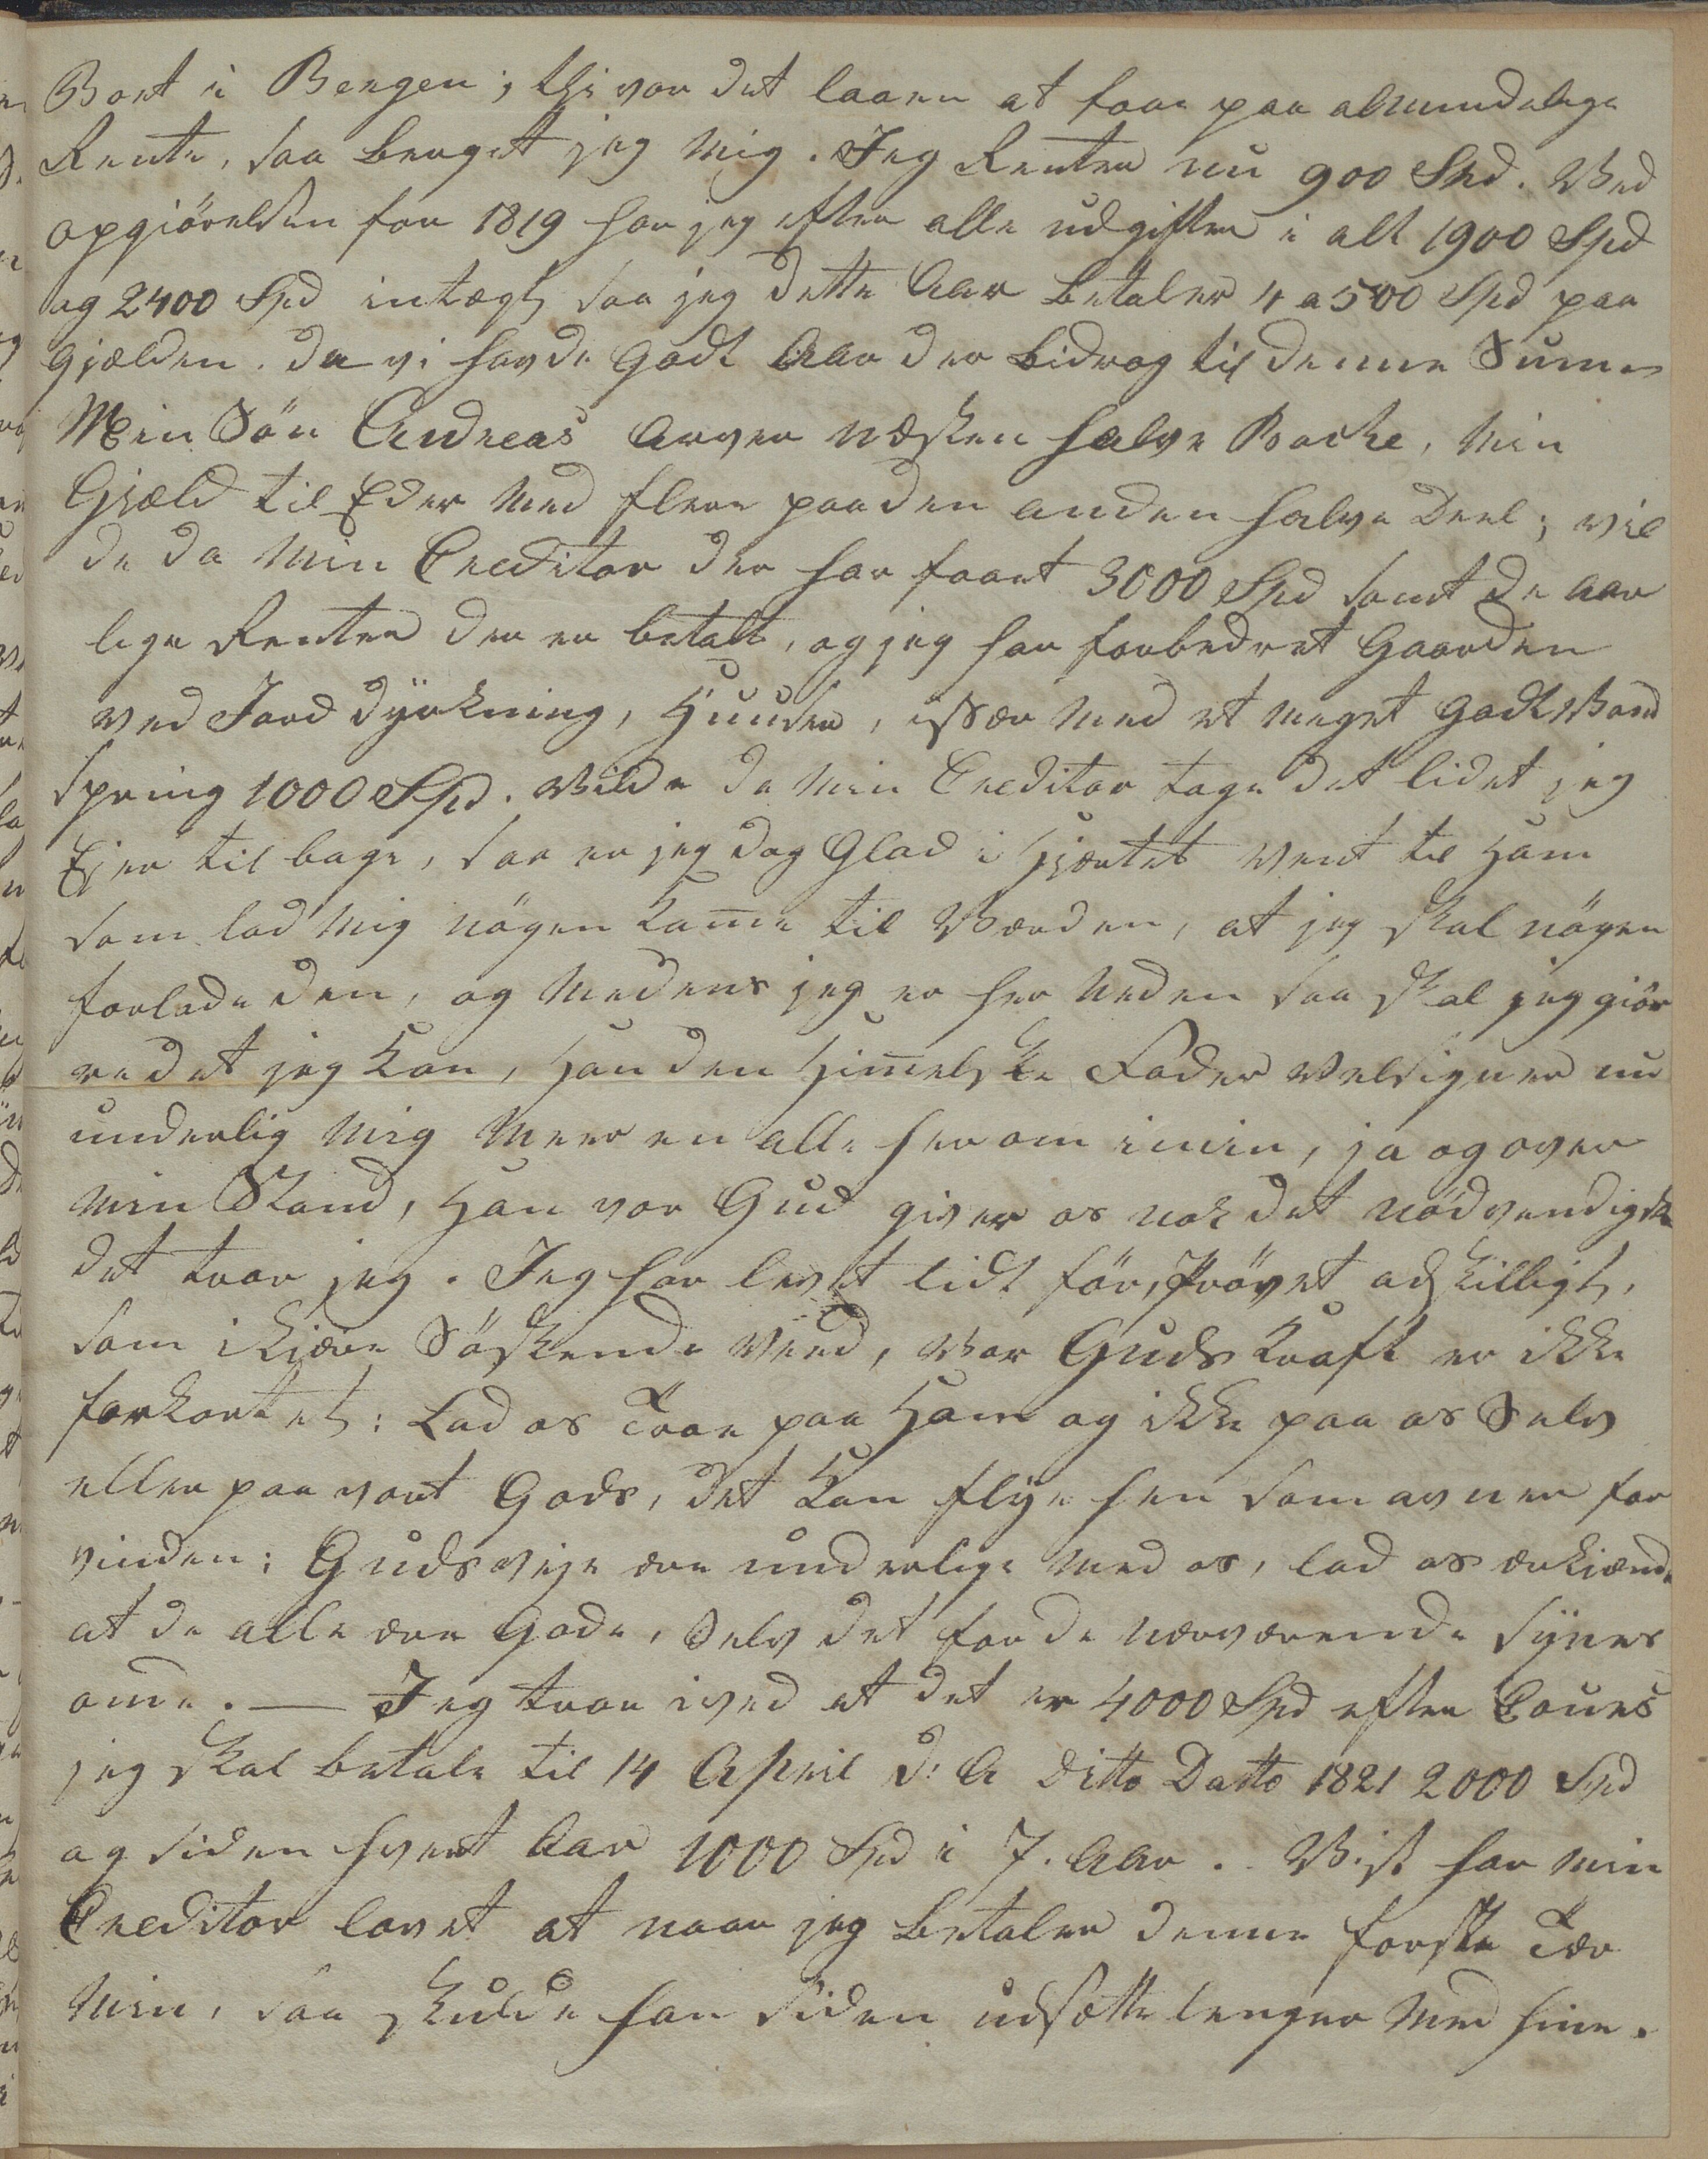 Bort i Bergen; thi var det laaen at faae paa almindelige
Rente, saa berget jeg mig. Jeg Renter nu 900 Spd. Ved
opgiörelsen for 1819 har jeg efter alle udgifter i alt 1900 Spd
og 2400 Spd intægt, saa jeg dette Aar betaler 4 a 500 Spd paa
gjælden. da vi havde godt Aar der bidrog til denne Summe
Min Sön Andreas arver næsten halve Backe, min
Gjæld til Eder med flere paa den anden halve Deel; vil
de da min Creditor der har faaet 3000 Spd samt de aar
lige Renter der er betalt, og jeg har forbedret Gaarden
ved Jord dyrkning, Huuser, issær med et meget godt Vand
spring 1000 Spd. Vilde da min Creditor tage det lidet jeg
Ejer tilbage, saa er jeg dog Glad i Hjertet vent til Ham
som lod mig nögen komme til Verden, at jeg skal nögen
forlade den, og medens jeg er her neden saa skal jeg giör
re det jeg kan, Han den Himmelske Fader velsigner nu
underlig mig meer en alle her om i min, ja og over
min Stand, Han vor Gud giver os nok det nödvendigste
det troer jeg. Jeg har levet lidt för, Prövet adskilligt,
som i kiære Söskende veed, Vor Guds Kraft er ikke
forkortet: Lad os Troe paa Ham og ikke paa os Selv
eller paa vort Gods, det kan flye hen som avner for
vinden: Guds veje ere underlige med os, lad os erkiænde
at de alle ere Gode, Selv det for de nærværende synes
onde. — Jeg troer i ved at det er 4000 Spd efter Cours
jeg skal betale til 14 April d: A ditto Datto 1821 2000 Spd
og siden hvert Aar 1000 Spd i 7. Aar. Vist har min
Creditor lovet at naar jeg betaler denne forste Ter
min, saa skulde han siden udsætte lenger med sine.